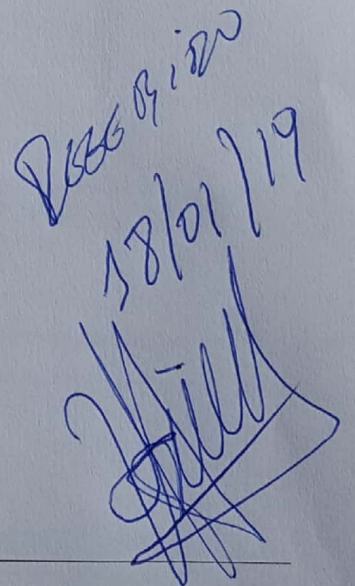 Recebido
18/01/19